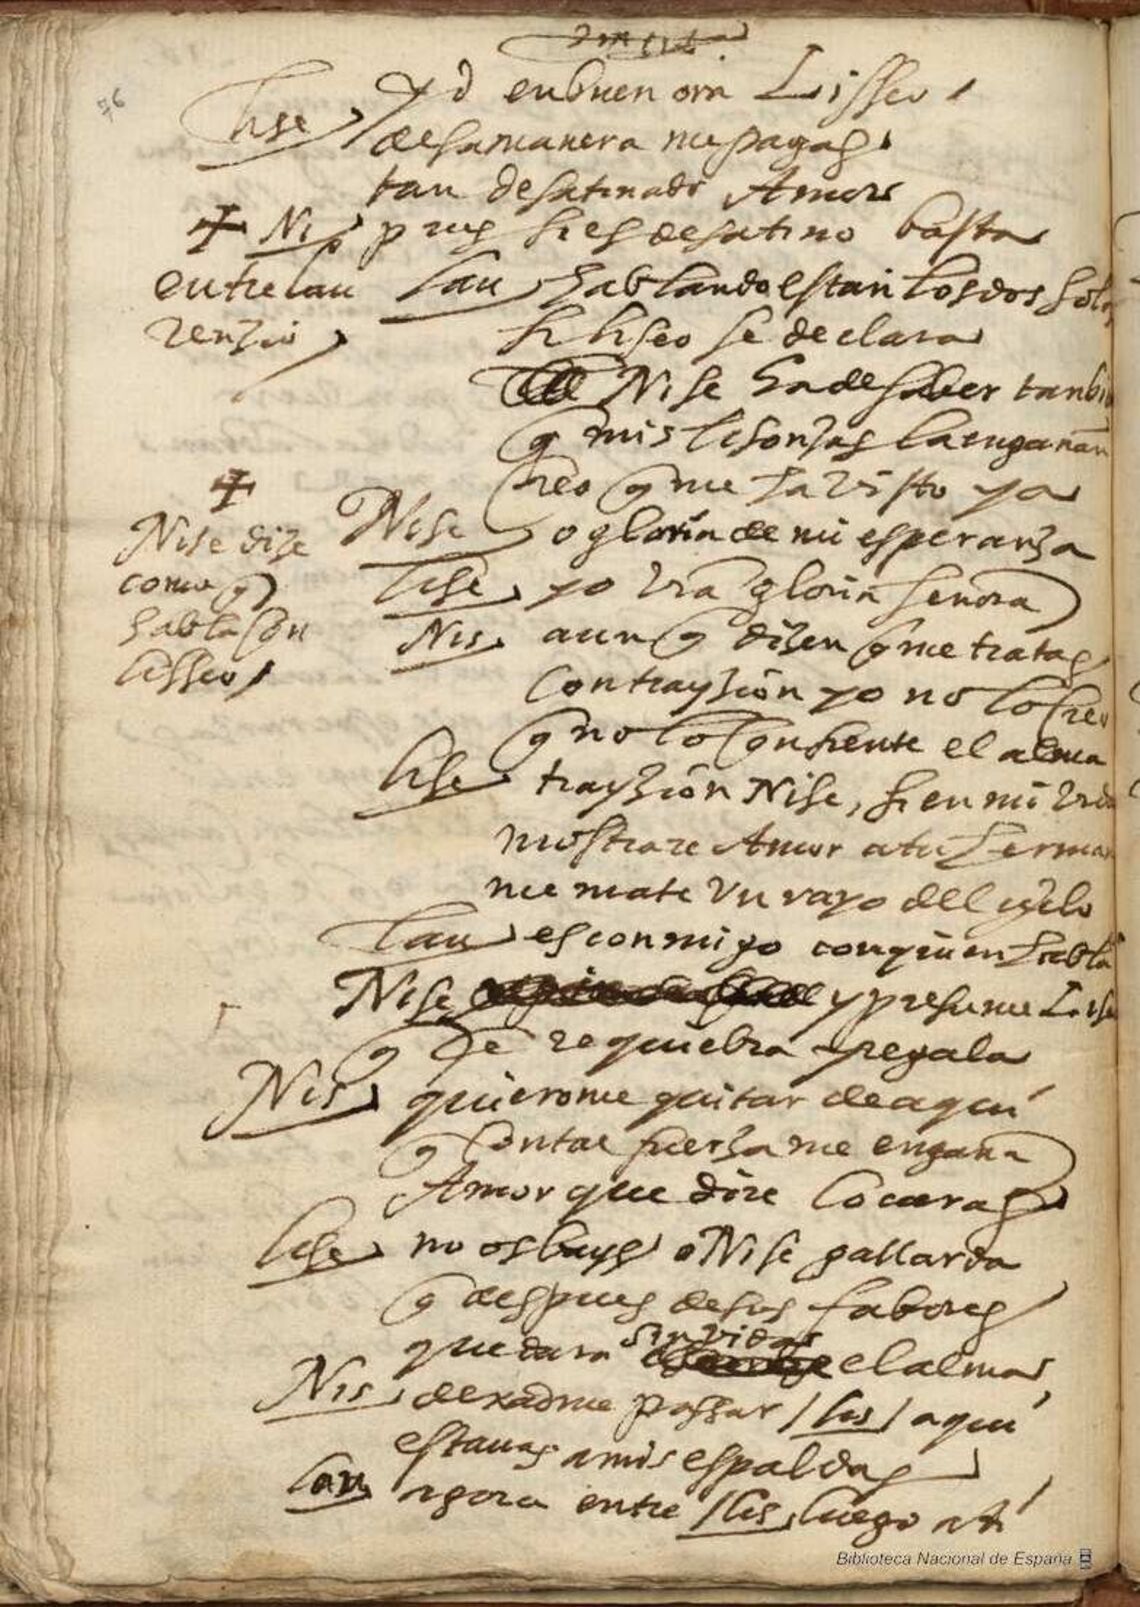 76
yd enbuen ora Lisseo
lise desamanera me pagas
tan desatinado Amor
Nis pues si es desatino basta
entre lau
renzio
lau hablando estan los dos solos
si liseo se declara
Nise ha de saber tanbie
q mis lisonjas la enganan
creo q me ha visto ya
Nise dize
como q
habla con
lisseo
Nise o gloria de mi esperanza
lise yo vra gloria senora
Nis aun q dizen q me tratas
con trayzion yo no lo creo
q no lo consiente el alma
lise trayzion Nise, si en mi vida
mostrare Amor a tu herman
me mate un rayo del cielo
lau es conmigo con quien habla
Nise y presume Lise
q le requiebra y regala
Nis quierome quitar de aqui
q con tal fuerza me engana
Amor que dire locuras
lise no os bays o Nise gallarda
q despues de sus fabores
quedara sin vida el alma
Nis dexadme passar / lis / aqui
estauas a mis espaldas
lau agora entre / lis luego a ti
Biblioteca Nacional de España